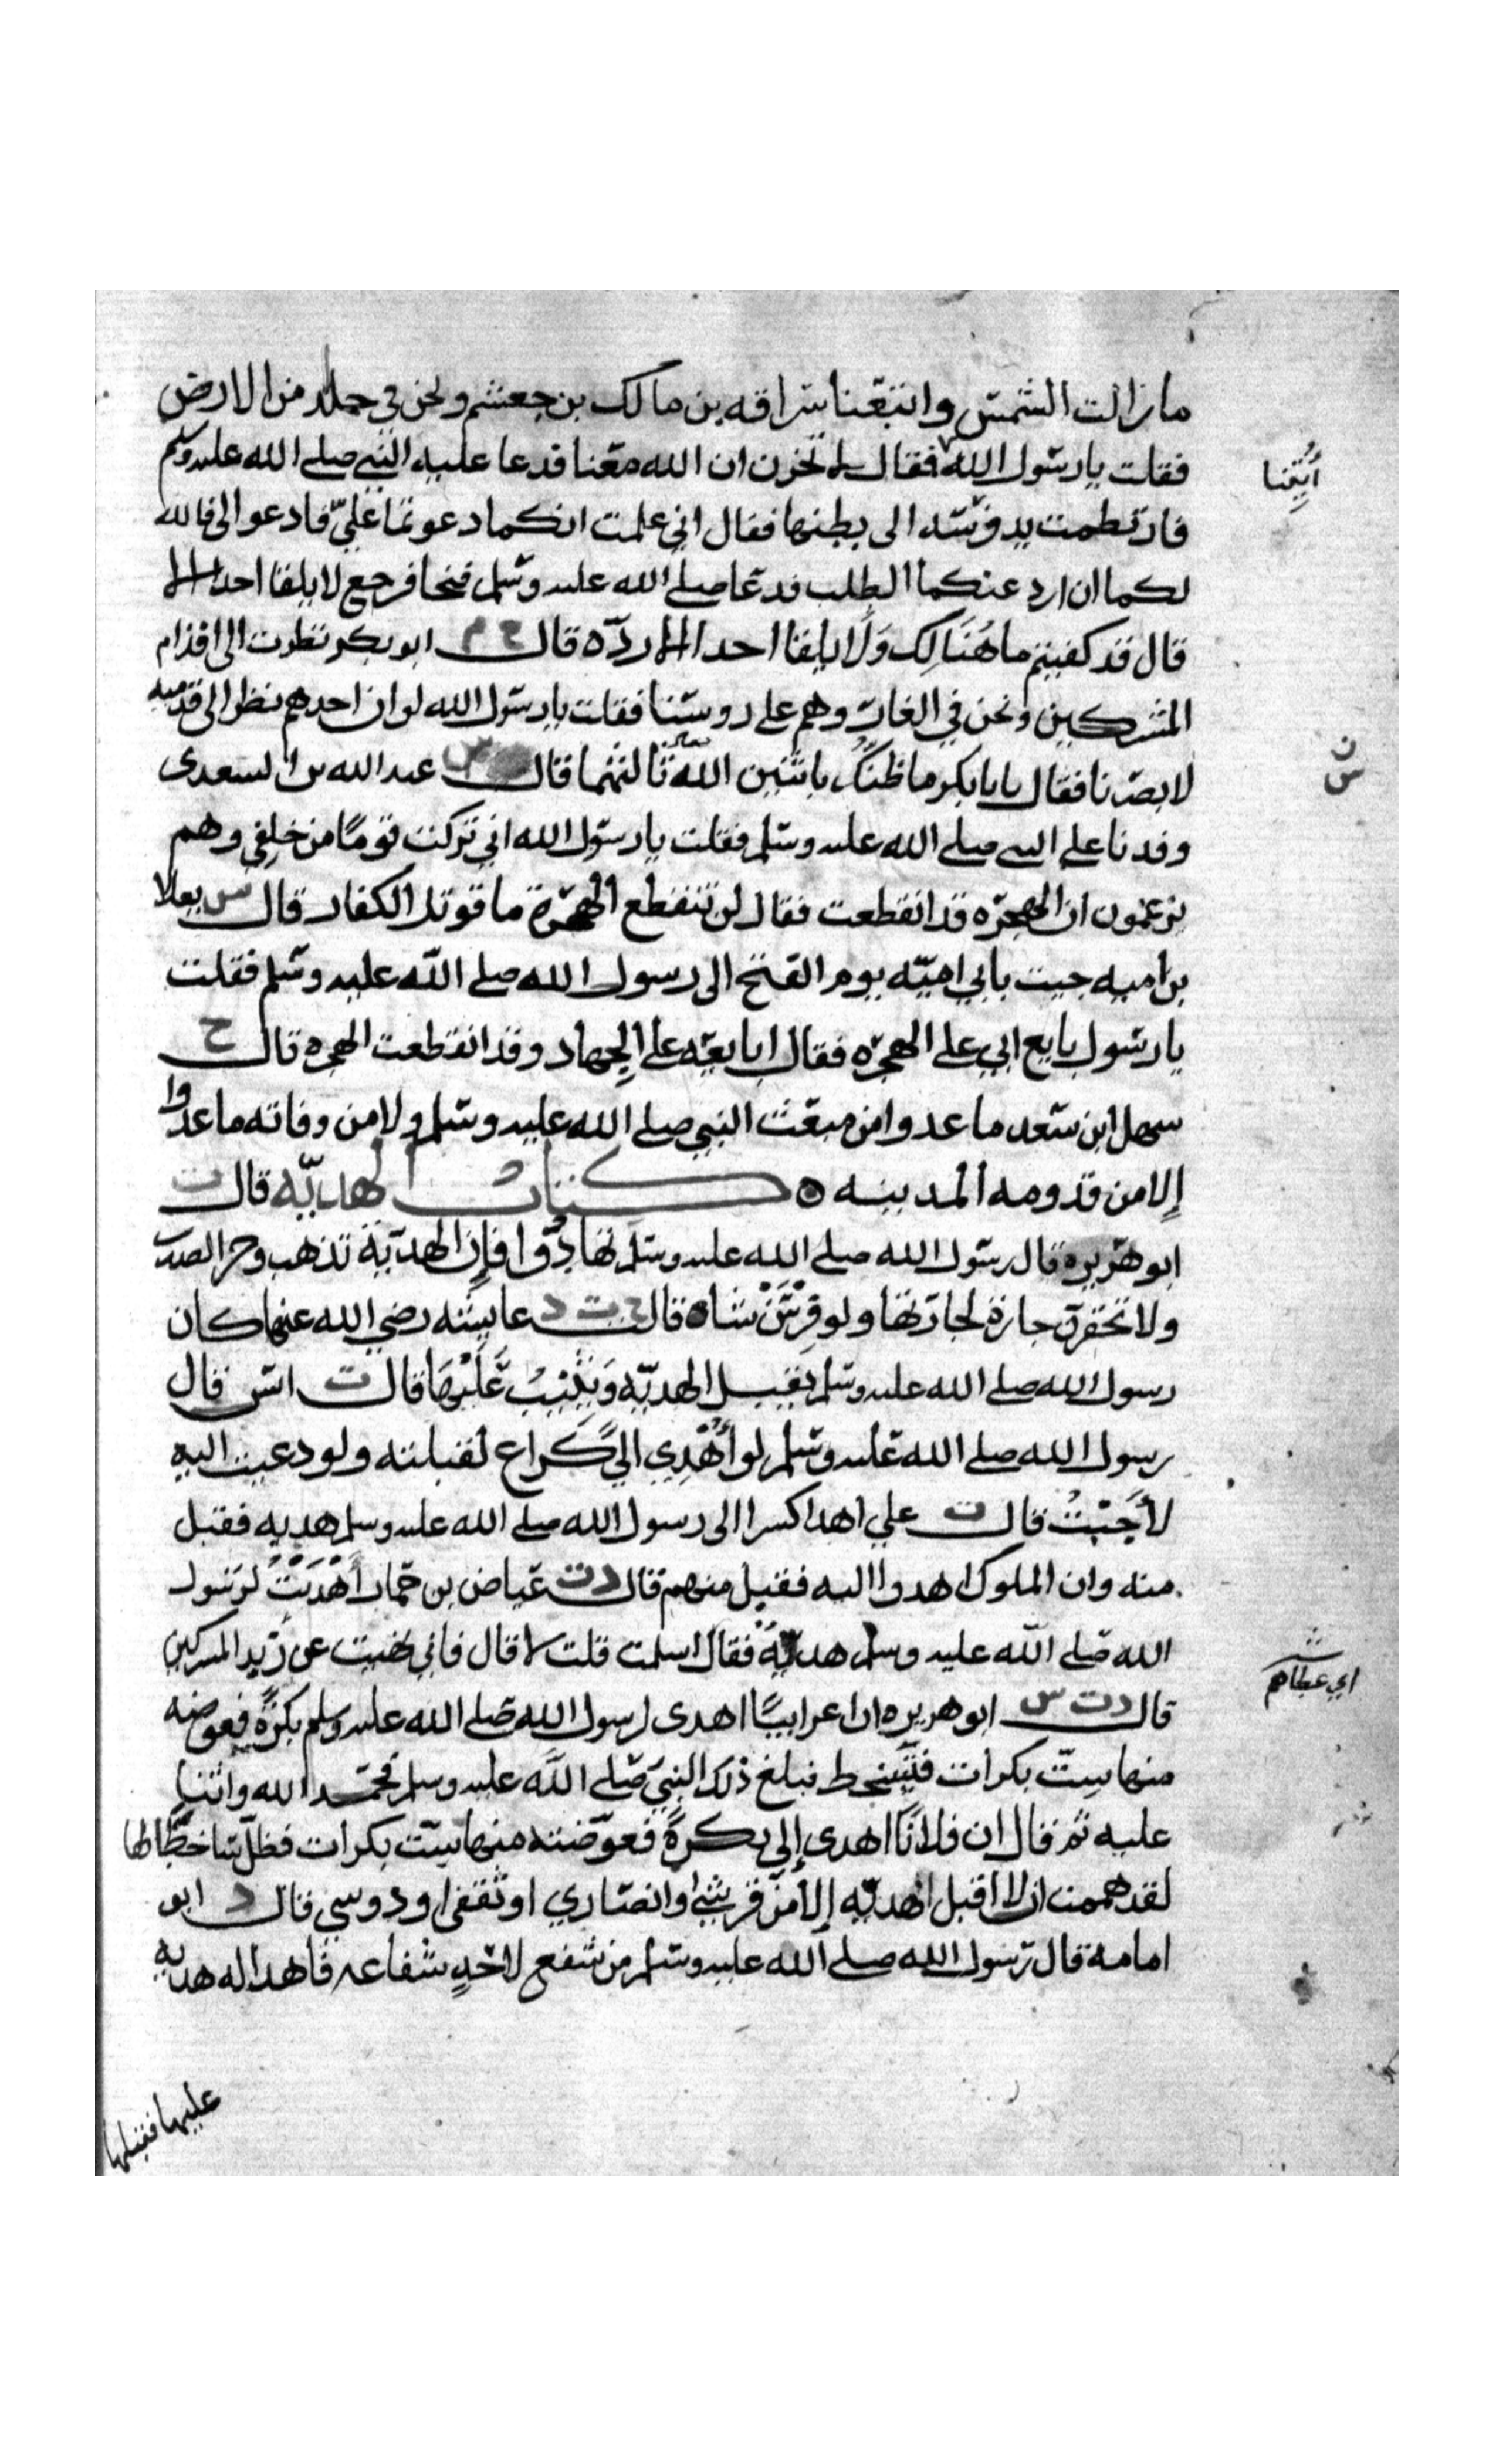 ما زالت الشمس واتبعنا سراقه بن مالك بن جعشم ونحن في جلد من الارض
فقلت يا رسول الله فقال لا تحزن ان الله معنا فدعا عليه النبي صلى الله عليه وسلم
أُتِينا
فارتطمت به فرسه الى بطنها فقال اني علمت انكما دعوتما عليّ فادعوا لي فالله
لكما ان ارد عنكما الطلب فدعا صلى الله عليه وسلم فنجا فرجع لا يلقا احدا الا
قال قد كفيتم ما هُنَالِك وَلَا يلقا احدا الا ردّه قال خ م ابو بكر نظرت الى اقدام
المشركين ونحن في الغار وهم على روسنا فقلت يا رسول الله لو ان احدهم نظر الى قدميه
لابصرنا فقال يابا بكر ما ظنك باثنين الله ثالثهما قال س عبد الله بن السعدى
ن
س
وفدنا على النبي صلى الله عليه وسلم فقلت يا رسول الله اني تركت قومًا من خلفي وهم
يزعمون ان الهجره قد انقطعت فقال لن تنقطع الهجرة ما قوتل الكفار قال س يعلا
بن اميه جيت بابي اميّه يوم الفتح الى رسول الله صلى الله عليه وسلم فقلت
يا رسول بايع ابي على الهجره فقال ابايعه على الجهاد وقد انقطعت الهجره قال خ
سهل ابن سعد ما عدوا من مبعث النبي صلى الله عليه وسلم ولا من وفاته ما عدوا
إلا من قدومه المدينه ه كتاب الهديّه قال ت
ابو هريره قال رسول الله صلى الله عليه وسلم تهادُوا فإن الهديّة تذهب وحر الصدر
ولا تحقرن جارة لجارتها ولو فِرْسَنْ شاه قال خ ت د عايشه رضي الله عنها كان
رسول الله صلى الله عليه وسلم يقبل الهديّه وَيُثِيْبُ عَلَيْهَا قال ت انس قال
رسول الله صلى الله عليه وسلم لو أُهْدِي الىّ كراع لقبلته ولو دعيت اليه
لأَجَبْتُ قال ت علي اهدا كسرا الى رسول الله صلى الله عليه وسلم هديه فقبل
منه وان الملوك اهدوا اليه فقبل منهم قال د ت عياض بن حمار أَهْدَيْتُ لرسول
الله صلى الله عليه وسلم هديّةً فقال اسلمت قلت لا قال فاني نهيت عن زبد المشركين
اي عطاهم
قال د ت س ابو هريره ان اعرابيًا اهدى لرسول الله صلى الله عليه وسلم بكرةً فعوضه
منها سِتّ بكرات فتسخط فبلغ ذلك النبي صلى الله عليه وسلم فحمد الله واثنا
عليه ثم قال ان فلانًا اهدى إلي بكرةً فعوّضته منها ستّ بكرات فظلّ ساخطًا لها
لقد هممت ان لا اقبل الهديّه إلا من قرشي او انصاري او ثقفي او دوسي قال د ابو
امامة قال رسول الله صلى الله عليه وسلم من شفع لاحدٍ شفاعه فاهدا له هديه
عليها فقبلها